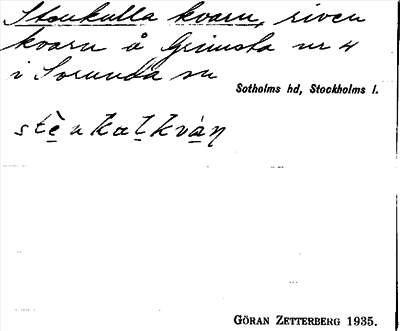 Stenkulla kvarn, riven
kvarn å Grimsta nr 4
i Sorunda sn
Sotholms hd, Stockholms l.
stè̱nkaḻkvá̱ṉ
GÖRAN ZETTERBERG 1935.